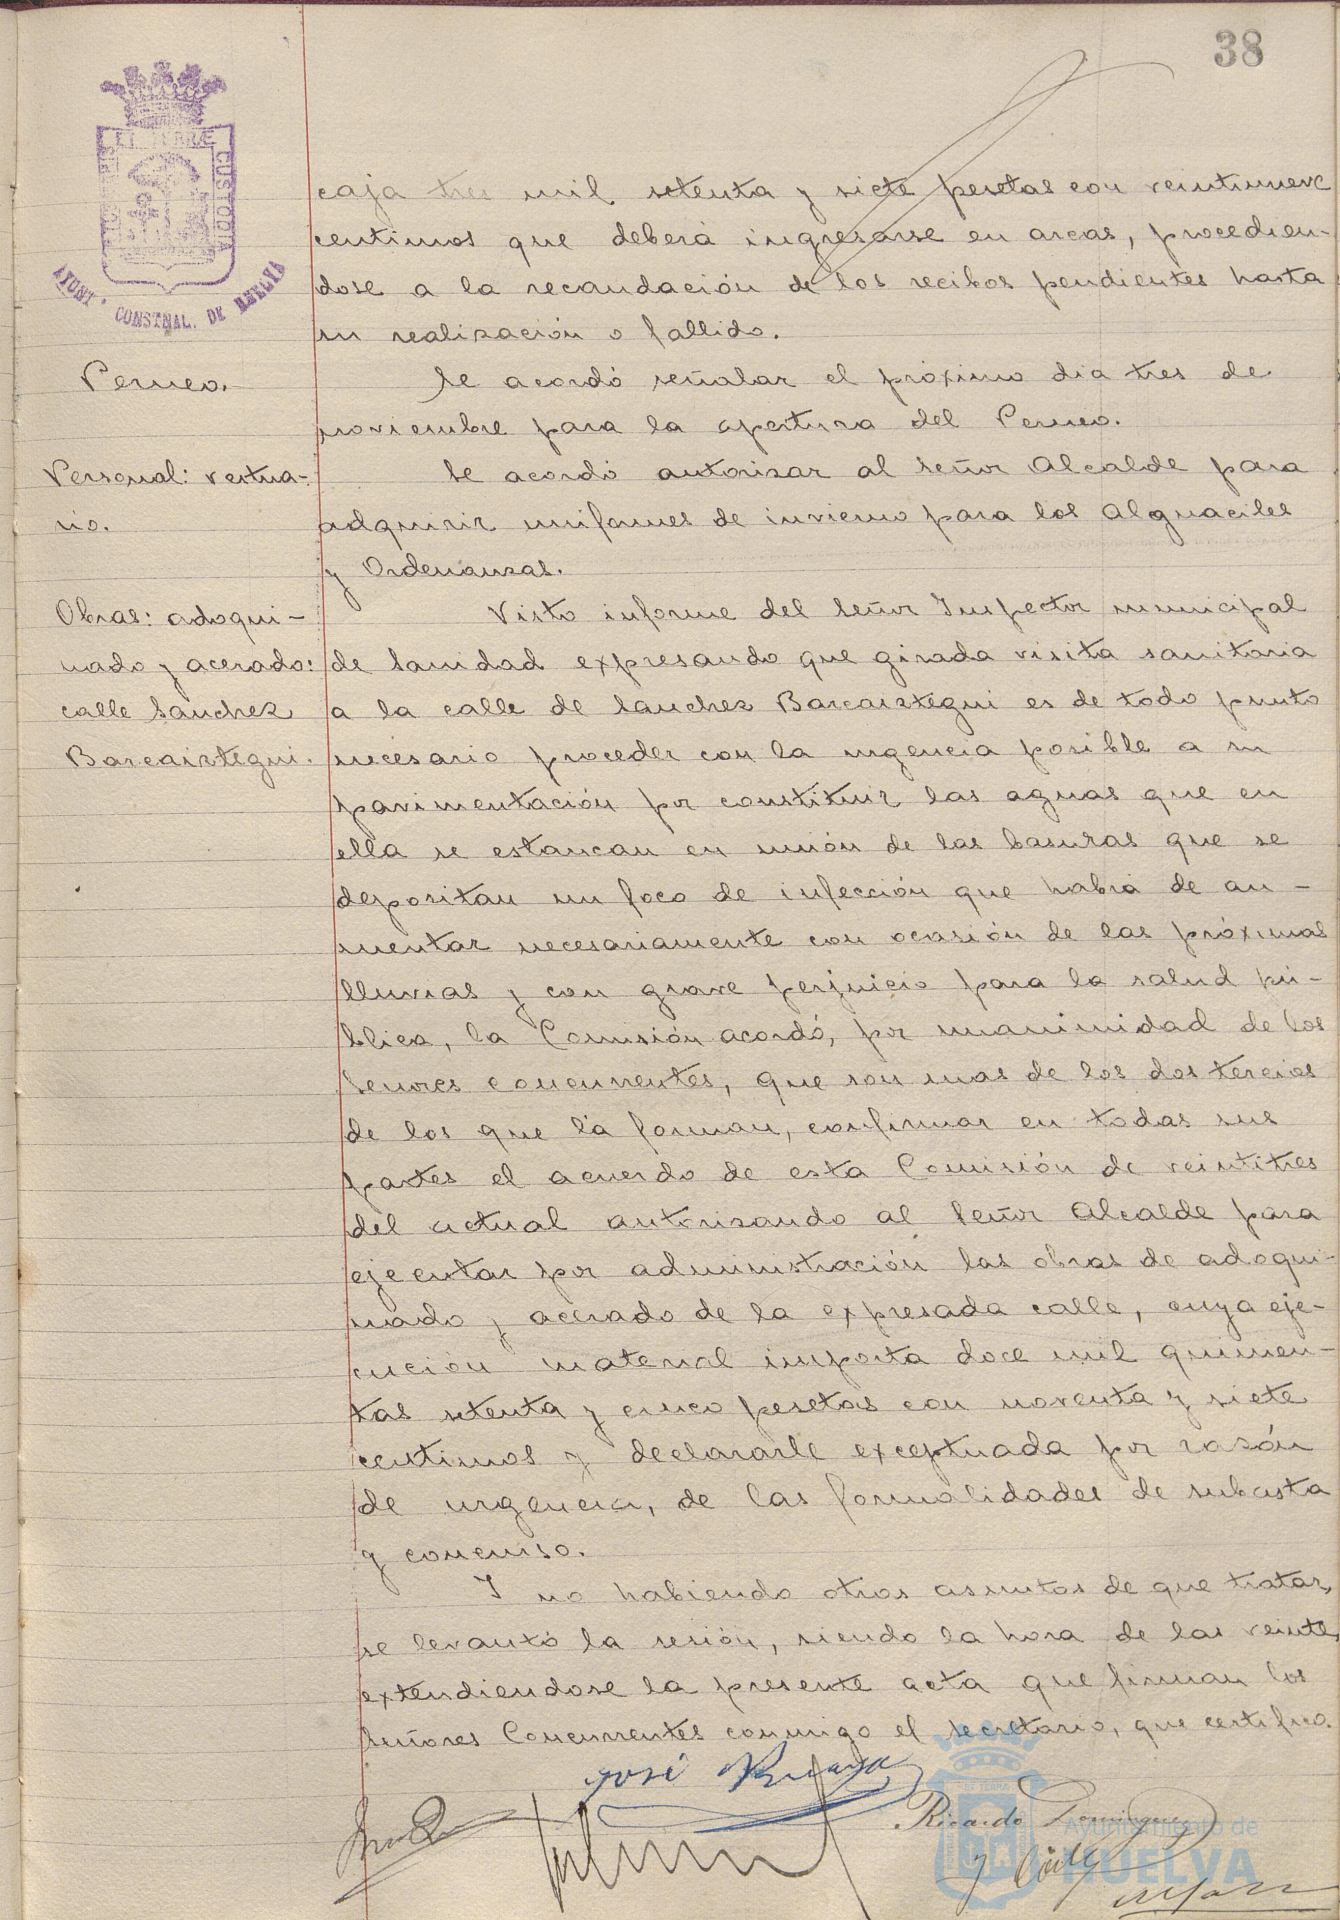 38
PORTUS MARIS ET TERRÆ CUSTODIA
AYUNT.º CONSTNAL. DE HUELVA
caja tres mil setenta y siete pesetas con veintinueve
centimos que deberá ingresarse en arcas, procedien-
dose a la recaudación de los recibos pendientes hasta
su realización o fallido.
Perneo.-
Se acordó señalar el próximo dia tres de
noviembre para la apertura del Perneo.
Personal: vestua-
rio.
Se acordó autorizar al Señor Alcalde para
adquirir uniformes de invierno para los Alguaciles
y Ordenanzas.
Obras: adoqui-
nado y acerado:
calle Sanchez
Barcaiztegui.
Visto informe del Señor Inspector municipal
de Sanidad expresando que girada visita sanitaria
a la calle de Sanchez Barcaiztegui es de todo punto
necesario proceder con la urgencia posible a su
pavimentación por constituir las aguas que en
ella se estancan en unión de las basuras que se
depositan un foco de infección que habrá de au-
mentar necesariamente con ocasión de las próximas
lluvias y con grave perjuicio para la salud pú-
blica, la Comisión acordó, por unanimidad de los
Señores concurrentes, que son mas de los dos tercios
de los que la forman, confirmar en todas sus
partes el acuerdo de esta Comisión de veintitres
del actual autorizando al Señor Alcalde para
ejecutar por administración las obras de adoqui-
nado y acerado de la expresada calle, cuya eje-
cución material importa doce mil quinien-
tas setenta y cinco pesetas con noventa y siete
centimos y declararle exceptuada por razón
de urgencia, de las formalidades de subasta
y concurso.
Y no habiendo otros asuntos de que tratar,
se levantó la sesión, siendo la hora de las veinte,
extendiendose la presente acta que firman los
Señores Concurrentes conmigo el secretario, que certifico.
José
Ricardo Dominguez
Ayuntamiento de
HUELVA